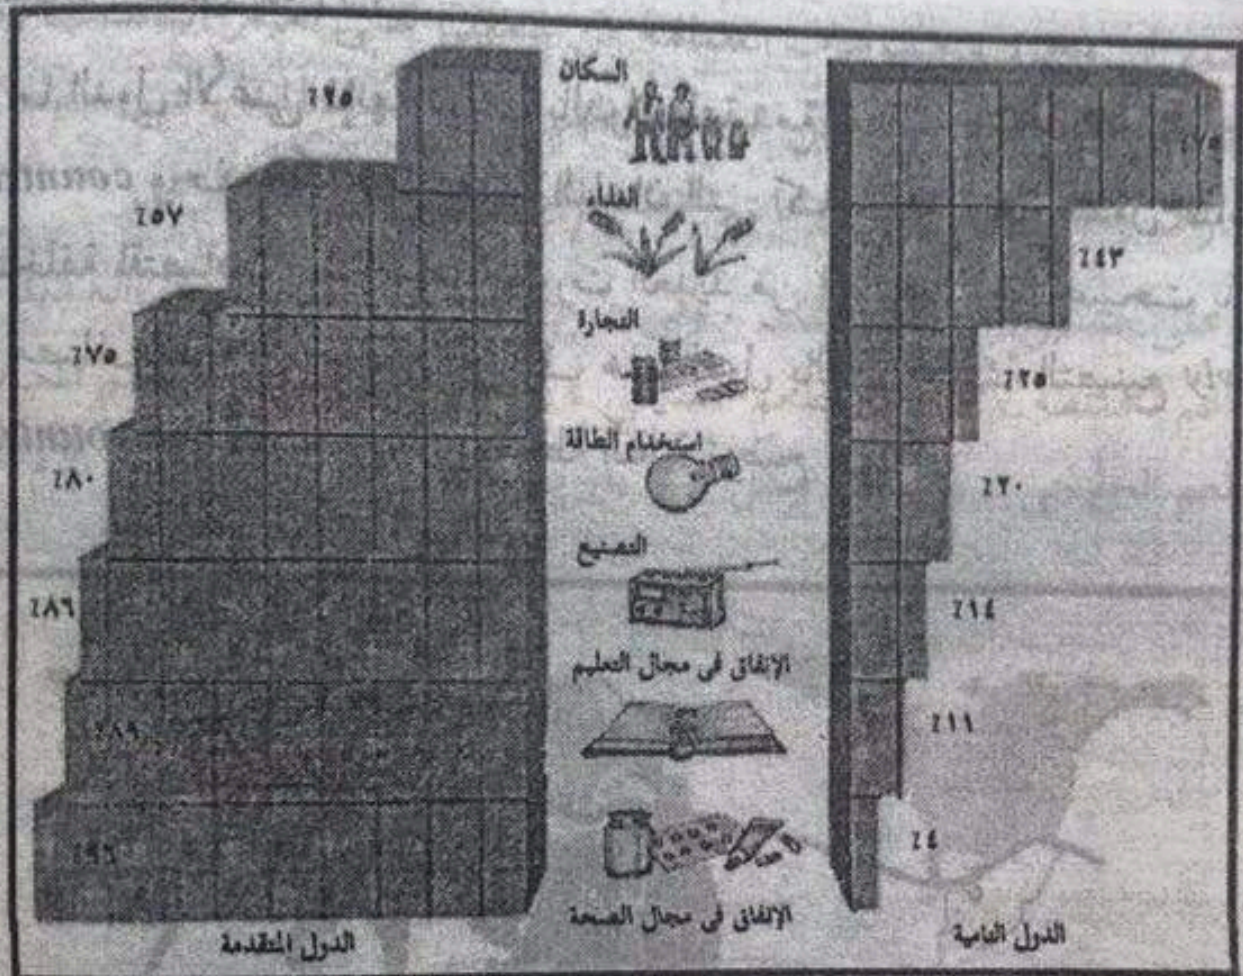 السكان
٪٢٥
٪٧٥
الغذاء
٪٥٧
٪٤٣
التجارة
٪٧٥
٪٢٥
استخدام الطاقة
٪٨٠
٪٢٠
التصنيع
٪٨٦
٪١٤
الإنفاق فى مجال التعليم
٪٨٩
٪١١
٪٩٦
٪٤
الإنفاق فى مجال الصحة
الدول المتقدمة
الدول النامية